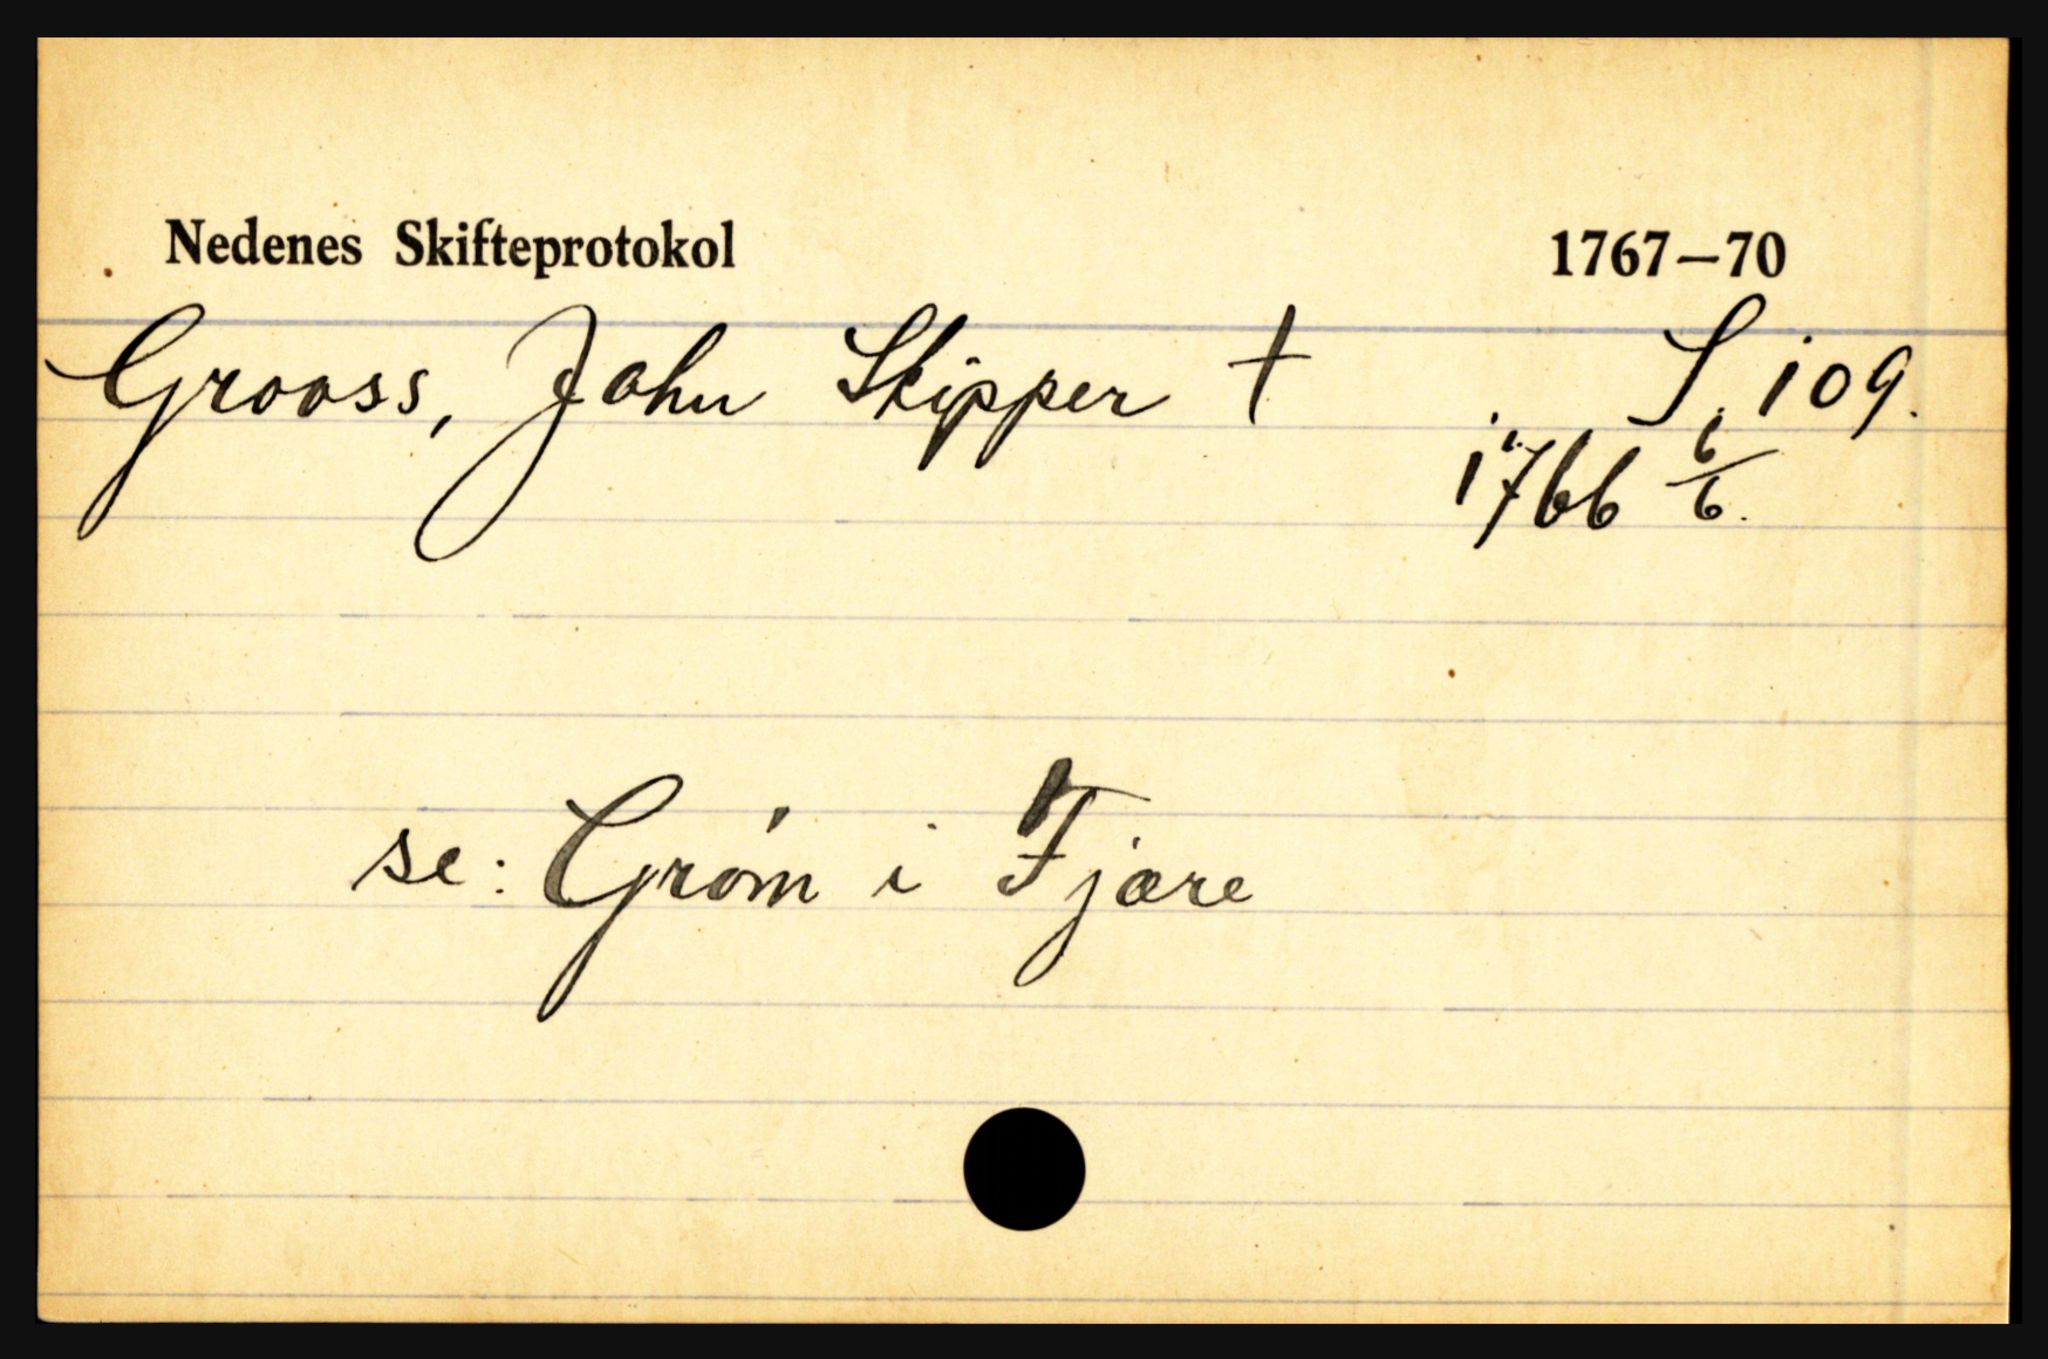 Nedenes Skifteprotokol 1767–70
Grooss, John Skipper † S. 109.
1766 6/6.
se: Grøm i Fjære